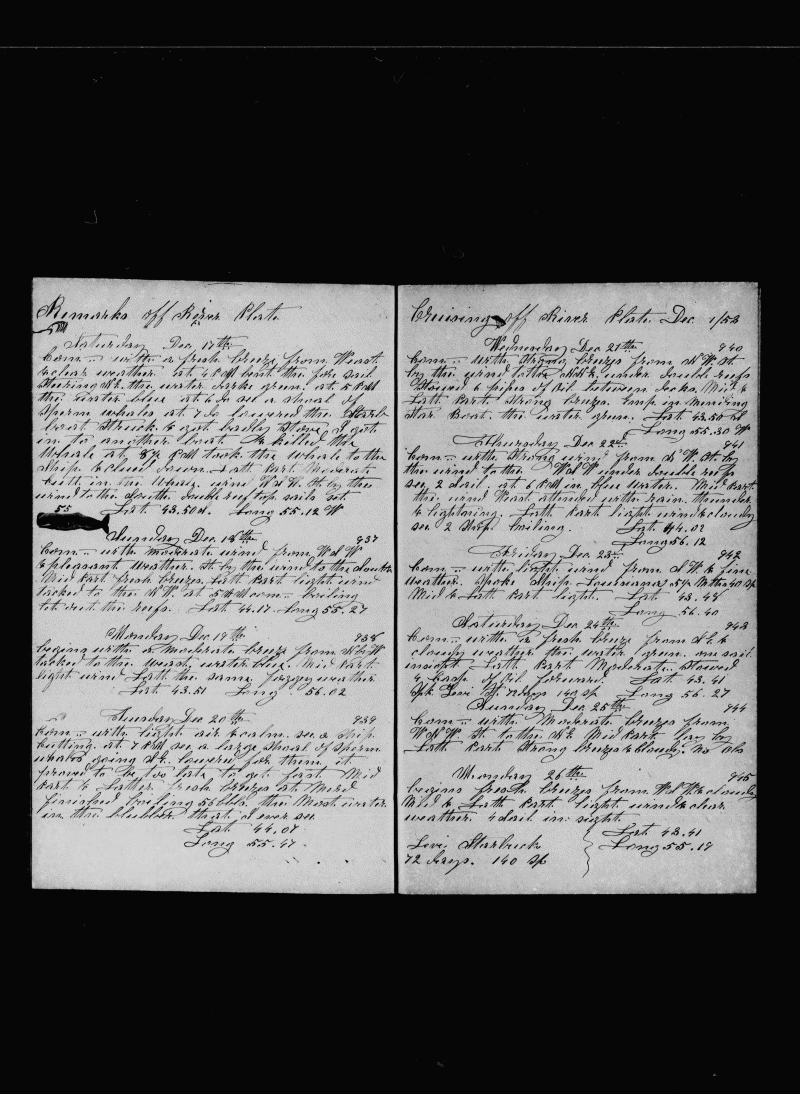 Remarks off River Plate
Saturday Dec 17th
Com— with a fresh breeze from West
& clear weather at 4 PM bent the fore sail
Steering NE. the water darke green. at 5 PM
the water blue at 6 do see a shoal of
Sperm whales at 7 do lowered the Starb
boat Struck & got badly Stove I got
in to another boat & killed the
Whale at 8½ PM took the whale to the
Ship & cloud down. Lath Part. Moderate
cutt in the Whale. wind
wind to the South double reef top sails set
55 Lat 43.50 S. Long 55.12 W
Sunday Dec. 18th 937
Com— with moderate wind from W S W
& pleasant weather. St by the wind to the South
Mid Part fresh breeze. Lath Part light wind
tacked to the N W at 5 AM com— boiling
let out the reefs. Lat 44.17 Long 55.27
Monday Dec 19th 938
begins with a moderate breeze from
tacked to the West, water blue. Mid Part
light wind Lath the same foggy weather
Lat 43.51 Long 56.02
Tuesday Dec 20th 939
Com— with light air & calm. see a Ship
cutting. at 7 PM see a large shoal of Sperm
whales going NE. lowerd for them it
proved to be too late to get fast Mid
Part & Lather fresh breeze at Merd
finished boiling 55 bbls. the Most water
in the blubber that I ever see
Lat 44.07
Long 55.47
Cruising off River Plate. Dec 1/53
Wednesday Dec 21th 940
Com— with Strong breeze from N W. St
by the wind to the NNE. under double reefs
Stowed 6 pipes of Oil between decks. Mid &
Lath Part Strong breeze. Emp in Mending
Star Boat. the water green. Lat 43.50 S
Long 55.30 W
Thursday Dec 22d 941
Com— with Strong wind from N W. St by
the wind to the W S W under double reefs
see 2 sail. at 6 PM in blue water. Mid Part
the wind West attended with rain thunder
& lightning. Lath Part light wind & cloudy
see 2 Ship boiling. Lat 44.02
Long 56.12
Friday Dec 23d 942
Com— with light wind from S W. & fine
weather. Spoke Ship Louisiana 5½ Mths 40 Sp
Mid & Lath Part light. Lat 43.48
Long 56.40
Saturday Dec 24th 943
Com— with a fresh breeze from N E &
cloudy weather the water green. one sail
in sight Lath Part Moderate.. stowed
4 Casp of Oil forward. Lat 43.41
Spk Levi St 72 days 140 Sp Long 56.27
Sunday Dec 25th 944
Com— with Moderate breeze from
W N W St to the N E Mid Part lay by
Lath Part Strong breeze & cloudy. no Obs
Monday 26th 945
begins fresh breeze from & cloudy
Mid & Lath Part light wind & clear
weather. 4 Sail in sight
Lat 43.41
Levi Starbuck Long 55.19
72 days. 140 Sp